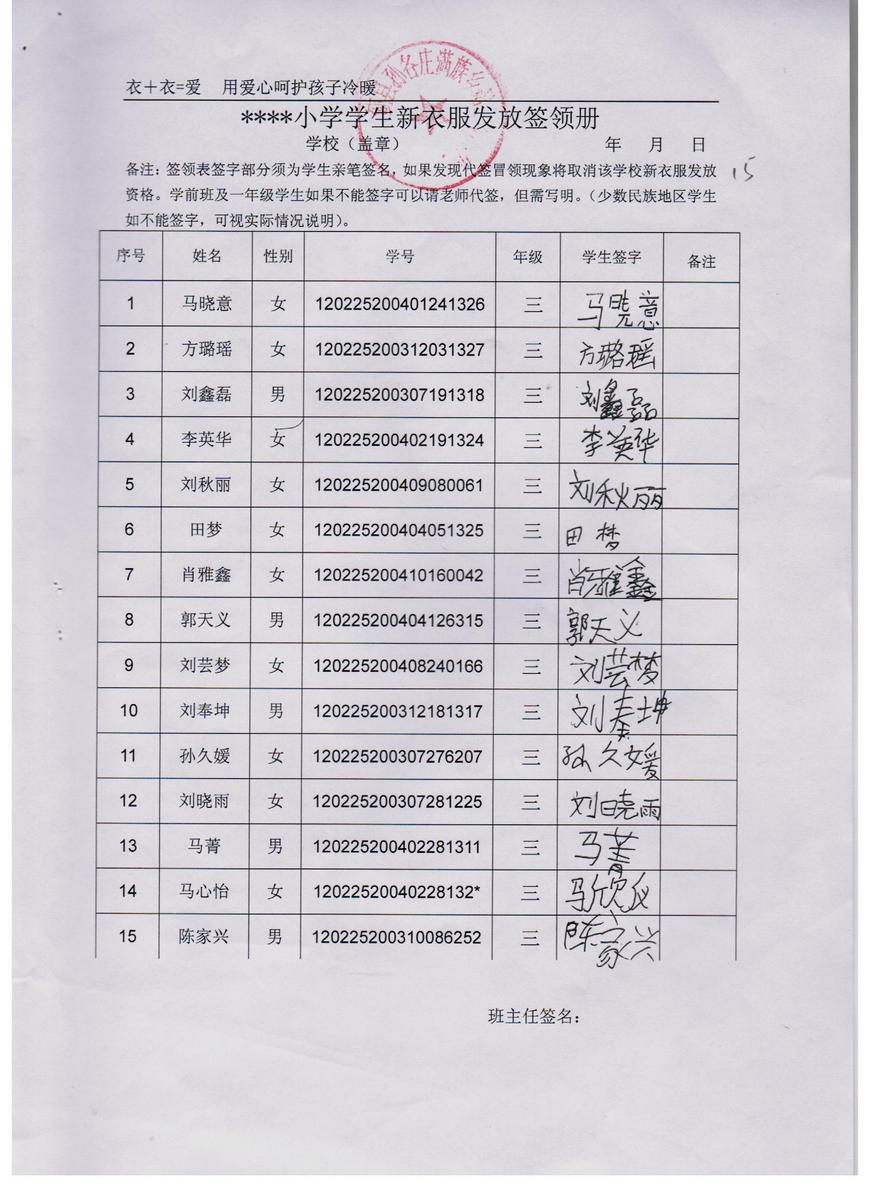 衣+衣=爱 用爱心呵护孩子冷暖
****小学学生新衣服发放签领册
学校（盖章） 年 月 日
备注：签领表签字部分须为学生亲笔签名，如果发现代签冒领现象将取消该学校新衣服发放 15
资格。学前班及一年级学生如果不能签字可以请老师代签，但需写明。（少数民族地区学生
如不能签字，可视实际情况说明）。
序号 姓名 性别 学号 年级 学生签字 备注
1 马晓意 女 120225200401241326 三 马晓意
2 方璐瑶 女 120225200312031327 三 方璐瑶
3 刘鑫磊 男 120225200307191318 三 刘鑫磊
4 李英华 女 120225200402191324 三 李英华
5 刘秋丽 女 120225200409080061 三 刘秋丽
6 田梦 女 120225200404051325 三 田梦
7 肖雅鑫 女 120225200410160042 三 肖雅鑫
8 郭天义 男 120225200404126315 三 郭天义
9 刘芸梦 女 120225200408240166 三 刘芸梦
10 刘奉坤 男 120225200312181317 三 刘奉坤
11 孙久媛 女 120225200307276207 三 孙久媛
12 刘晓雨 女 120225200307281225 三 刘晓雨
13 马菁 男 120225200402281311 三 马菁
14 马心怡 女 12022520040228132* 三 马欣仪
15 陈家兴 男 120225200310086252 三 陈家兴
班主任签名：
县孙各庄满族乡